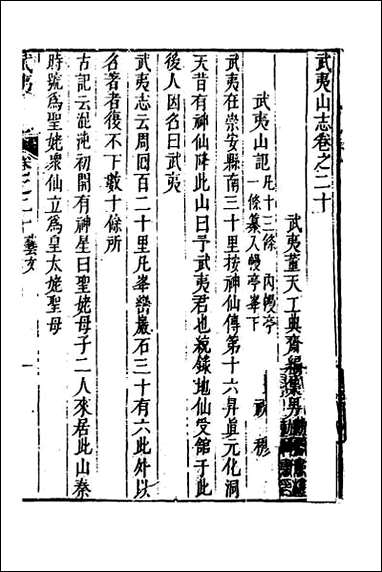 武夷山志卷之二十
武夷董天工典齋編
武夷山記凡十三條內幔亭一條纂入幔亭峯下 祝穆
武夷在崇安縣南三十里按神仙傳第十六昇眞元化洞
天昔有神仙降此山曰予武夷君也統錄地仙受館于此
後人因名曰武夷
武夷志云周囘百二十里凡峯巒巖石三十有六此外以
名著者復不下數十餘所
古記云混沌初開有神星曰聖姥母子二人來居此山秦
時號爲聖姥衆仙立爲皇太姥聖母
武夷
卷之二十藝文